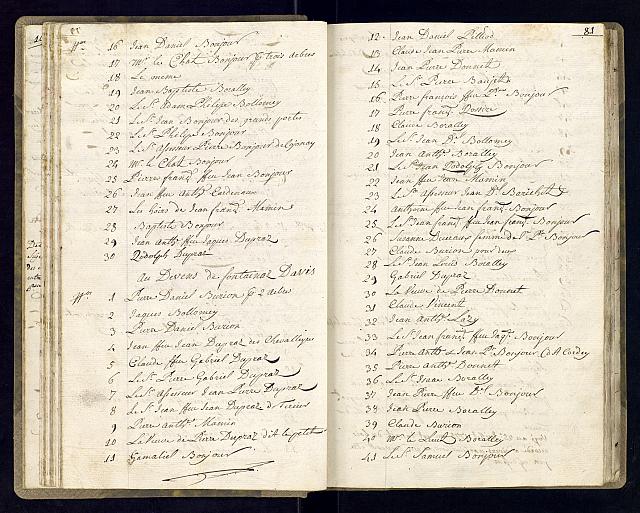 16 Jean Daniel Bonjour
17 Mr. le Chat. Bonjour p trois arbres
18 Le meme
19 Jean Baptiste Boralley
20 Le Sr. Adam Philipe Bollomey
21 Le Sr. Jean Bonjour des grands ports
22 Le Sr. Philipe Bonjour
23 Le Sr. Assesseur Pierre Bonjour de
24 Mr. le Chat. Bonjour
25 Pierre franç. ffeu Jean Bonjour
26 Jean ffeu Anth. Cardenaux
27 Les hoirs de Jean franç. Mamin
28 Baptiste Bonjour
29 Jean Anth. ffeu Jaques Dupraz
30 Rodolph Dupraz
Au Devens de fontainaz Davis
1 Pierre Daniel Burion p 2 arbres
2 Jaques Bollomey
3 Pierre Daniel Burion
4 Jean ffeu Jean Dupraz des Chevalleyres
5 Claude ffeu Gabriel Dupraz
6 Le Sr. Pierre Gabriel Dupraz
7 Le Sr. Assesseur Jean Pierre Dupraz
8 Le Sr. Jean ffeu Jean Dupraz d
9 Pierre Anth. Mamin
10 La Veuve de Pierre Dupraz dit le petit
11 Gamaliel Bonjour
81
12 Jean Daniel
13 Claude Jean Pierre Mamin
14 Jean Pierre Donnet
15 Le Sr. Pierre
16 Pierre françois ffeu Pre. Bonjour
17 Pierre franç.
18 Claude Boralley
19 Le Sr. Jean Dl. Bollomey
20 Jean Anth. Boralley
21 Le Sr. Jean Rodolph Bonjour
22 Jean ffeu Jean Mamin
23 Le Sr. Assesseur Jean Dl.
24 Anthoine ffeu Jean franç. Bonjour
25 Le Sr. Jean franç. ffeu Jean franç. Bonjour
26 Susanne femme de Sr. Pre. Bonjour
27 Claude Burion pour deux
28 Le Sr. Jean Louis Boralley
29 Gabriel Dupraz
30 La Veuve de Pierre Donnet
31 Claude Vincent
32 Jean Anth.
33 Le Sr. Jean franç. ffeu Jaq. Bonjour
34 Pierre Anth. & Jean Pre. Bonjour
35 Pierre Anth. Donnet
36 Le Sr. Isaac Boralley
37 Jean Pierre ffeu Dl. Bonjour
38 Jean Pierre Boralley
39 Claude Burion
40 Mr. le Lieut. Boralley
41 Le Sr. Samuel Bonjour